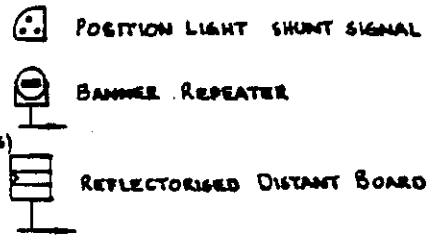 POSITION LIGHT SHUNT SIGNAL
BANNER REPEATER
REFLECTORISED DISTANT BOARD